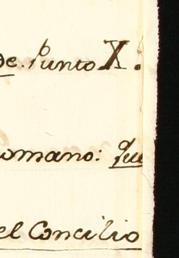 de. Punto X.
omano: que
el Concilio